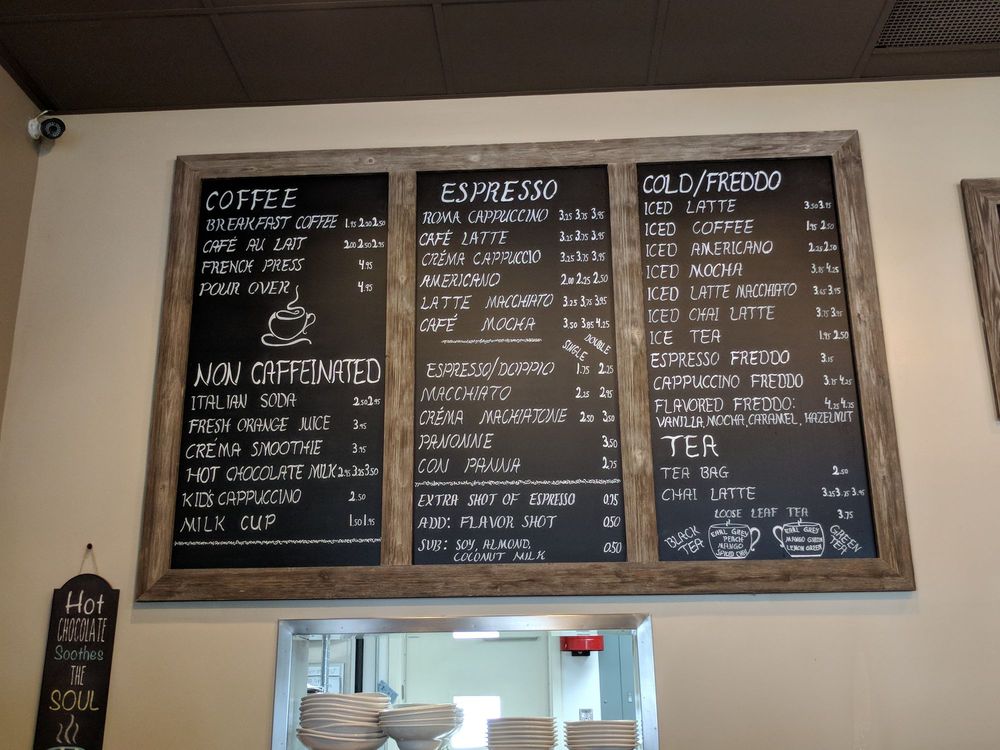 COFFEE
BREAKFAST COFFEE 1.95 2.20 2.50
CAFÉ AU LAIT 2.00 2.50 2.95
FRENCH PRESS 4.95
POUR OVER 4.95
NON CAFFEINATED
ITALIAN SODA 2.50 2.95
FRESH ORANGE JUICE 3.95
CRÉMA SMOOTHIE 3.95
HOT CHOCOLATE MILK 2.95 3.25 3.50
KIDS CAPPUCCINO 2.50
MILK CUP 1.50 1.95
ESPRESSO
ROMA CAPPUCCINO 3.25 3.75 3.95
CAFÉ LATTE 3.25 3.75 3.95
CRÉMA CAPPUCCIO 3.25 3.75 3.95
AMERICANO 2.00 2.25 2.50
LATTE MACCHIATO 3.25 3.75 3.95
CAFÉ MOCHA 3.50 3.85 4.25
SINGLE DOUBLE
ESPRESSO/DOPPIO 1.75 2.25
MACCHIATO 2.25 2.95
CRÉMA MACHIATONE 2.50 3.50
PANONNE 3.50
CON PANNA 2.75
EXTRA SHOT OF ESPRESSO 0.75
ADD: FLAVOR SHOT 0.50
SUB: SOY, ALMOND, 0.50
COCONUT MILK
COLD/FREDDO
ICED LATTE 3.50 3.95
ICED COFFEE 1.95 2.50
ICED AMERICANO 2.25 2.50
ICED MOCHA 3.75 4.25
ICED LATTE MACCHIATO 3.65 3.95
ICED CHAI LATTE 3.75 3.95
ICE TEA 1.95 2.50
ESPRESSO FREDDO 3.75
CAPPUCCINO FREDDO 3.75 4.25
FLAVORED FREDDO: 4.25 4.75
VANILLA, MOCHA, CARAMEL, HAZELNUT
TEA
TEA BAG 2.50
CHAI LATTE 3.25 3.75 3.95
LOOSE LEAF TEA 3.75
BLACK TEA
EARL GREY
PEACH
MANGO
SPICED CHAI
EARL GREY
MANGO GREEN
LEMON GREEN
GREEN TEA
Hot
CHOCOLATE
Soothes
THE
SOUL